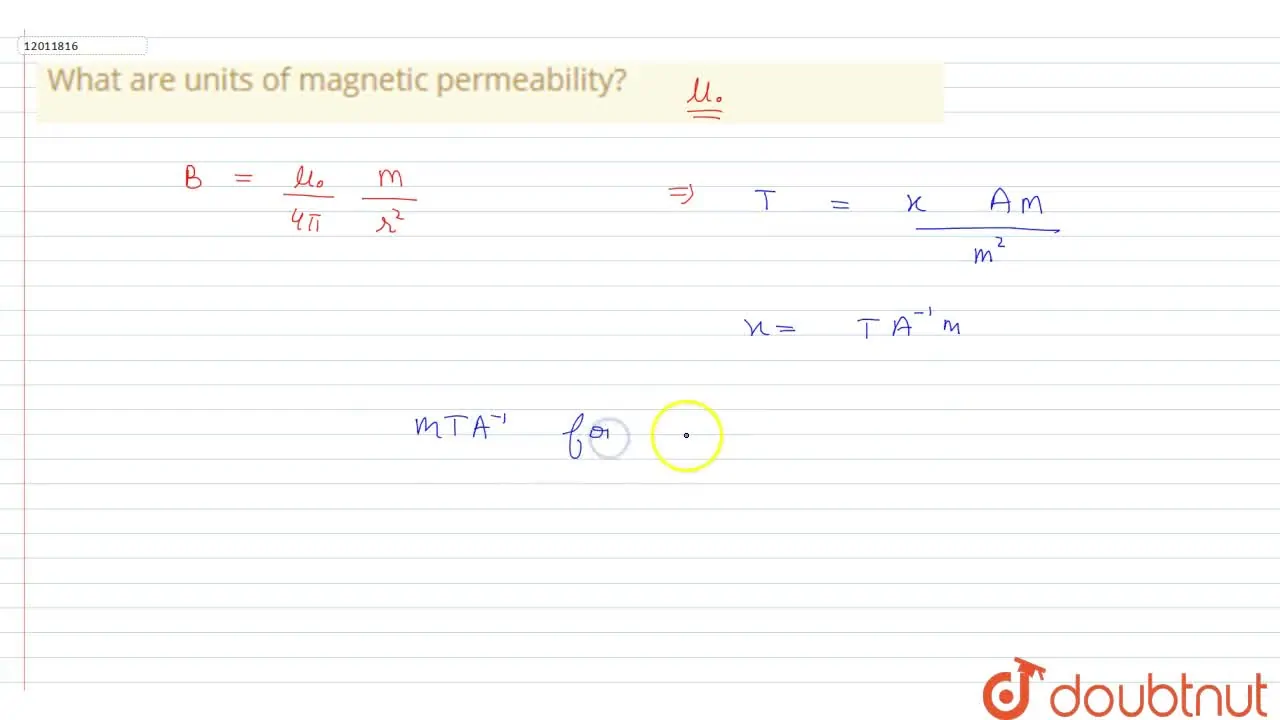 12011816
What are units of magnetic permeability? μ₀
B = μ₀/4π m/r² ⇒ T = x Am/m²
x = T A⁻¹ m
mTA⁻¹ for
doubtnut